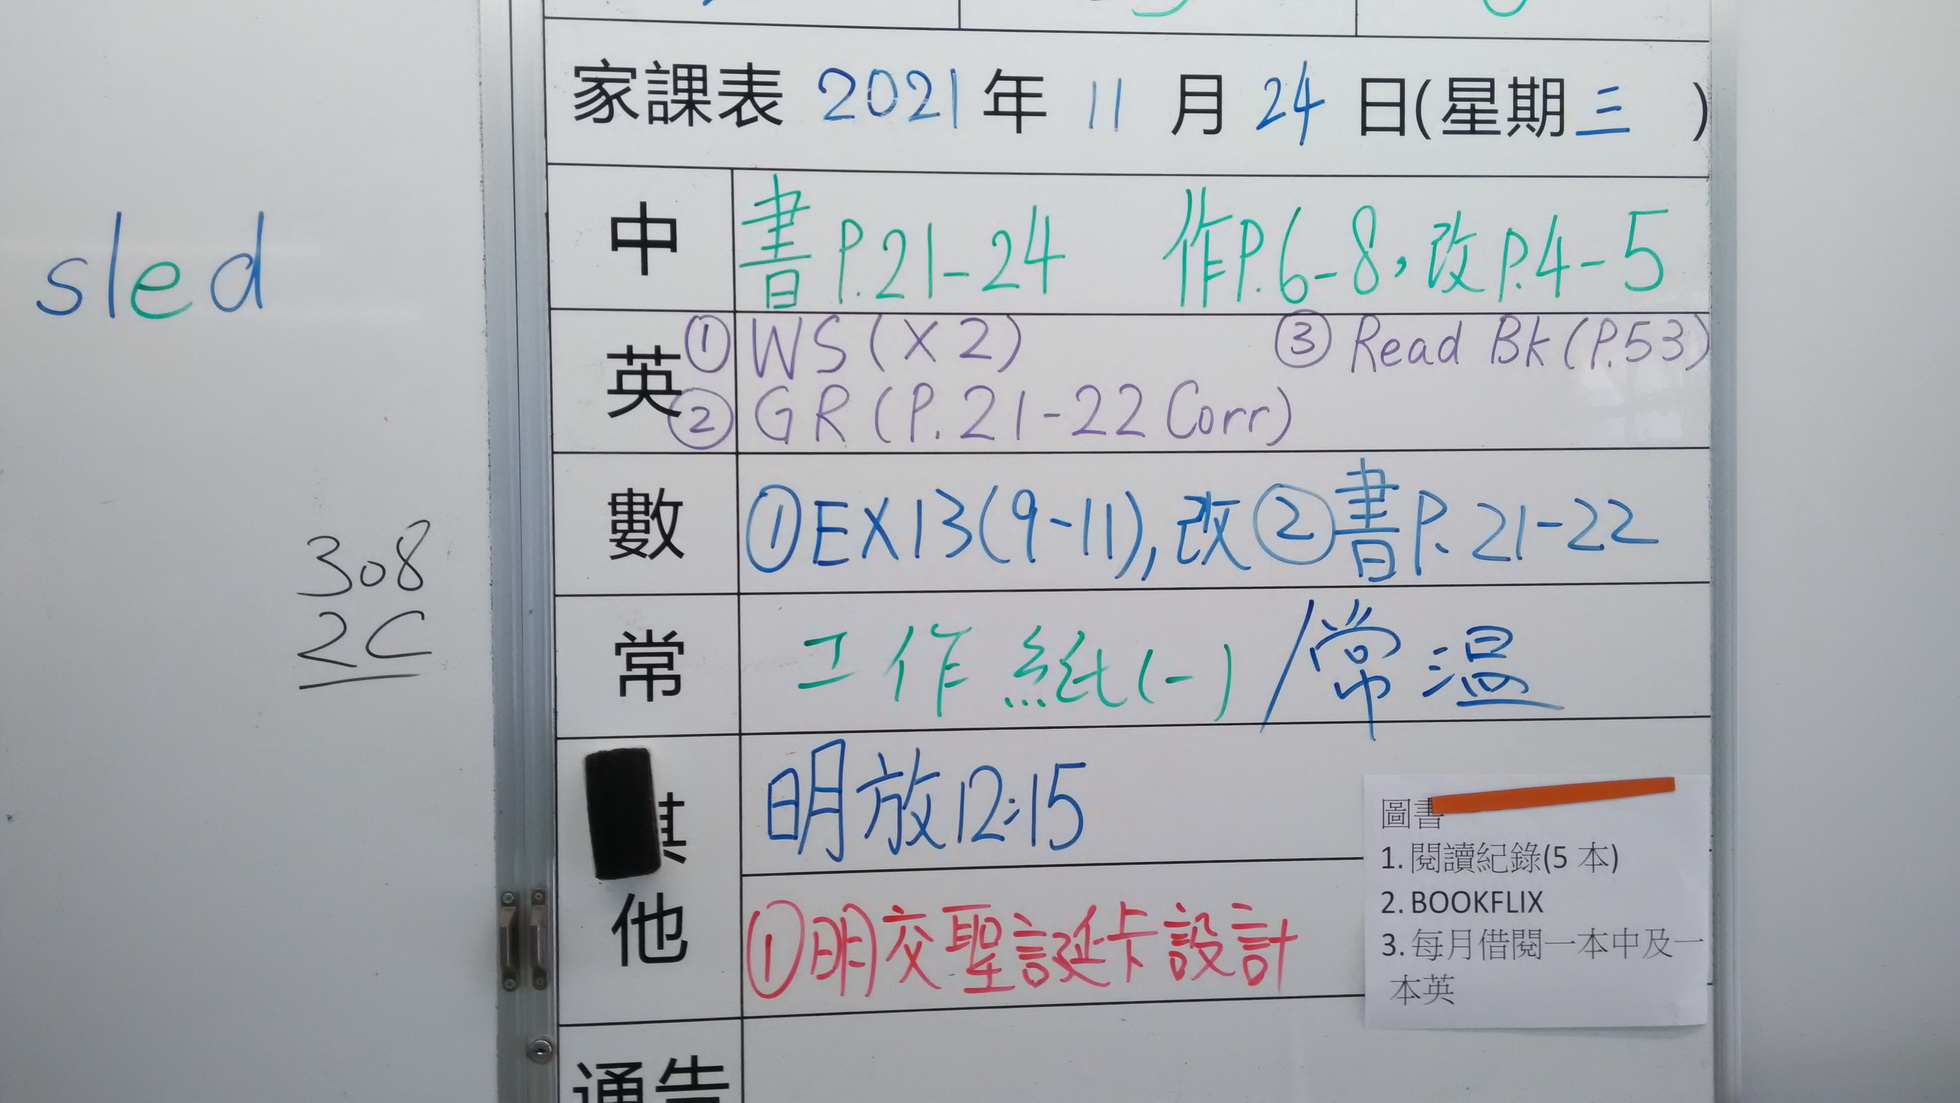 家課表 2021年 11 月 24 日(星期三 )
sled
中 書P.21-24 作P.6-8,改P.4-5
英 ① WS(X2) ③ Read Bk(P.53)
② GR(P.21-22 Corr)
數 ①EX13(9-11),改②書P.21-22
308
2C
常 工作紙(一)/常温
其他
明放12:15
①明交聖誕卡設計
圖書
1. 閱讀紀錄(5 本)
2. BOOKFLIX
3. 每月借閱一本中及一
本英
通告